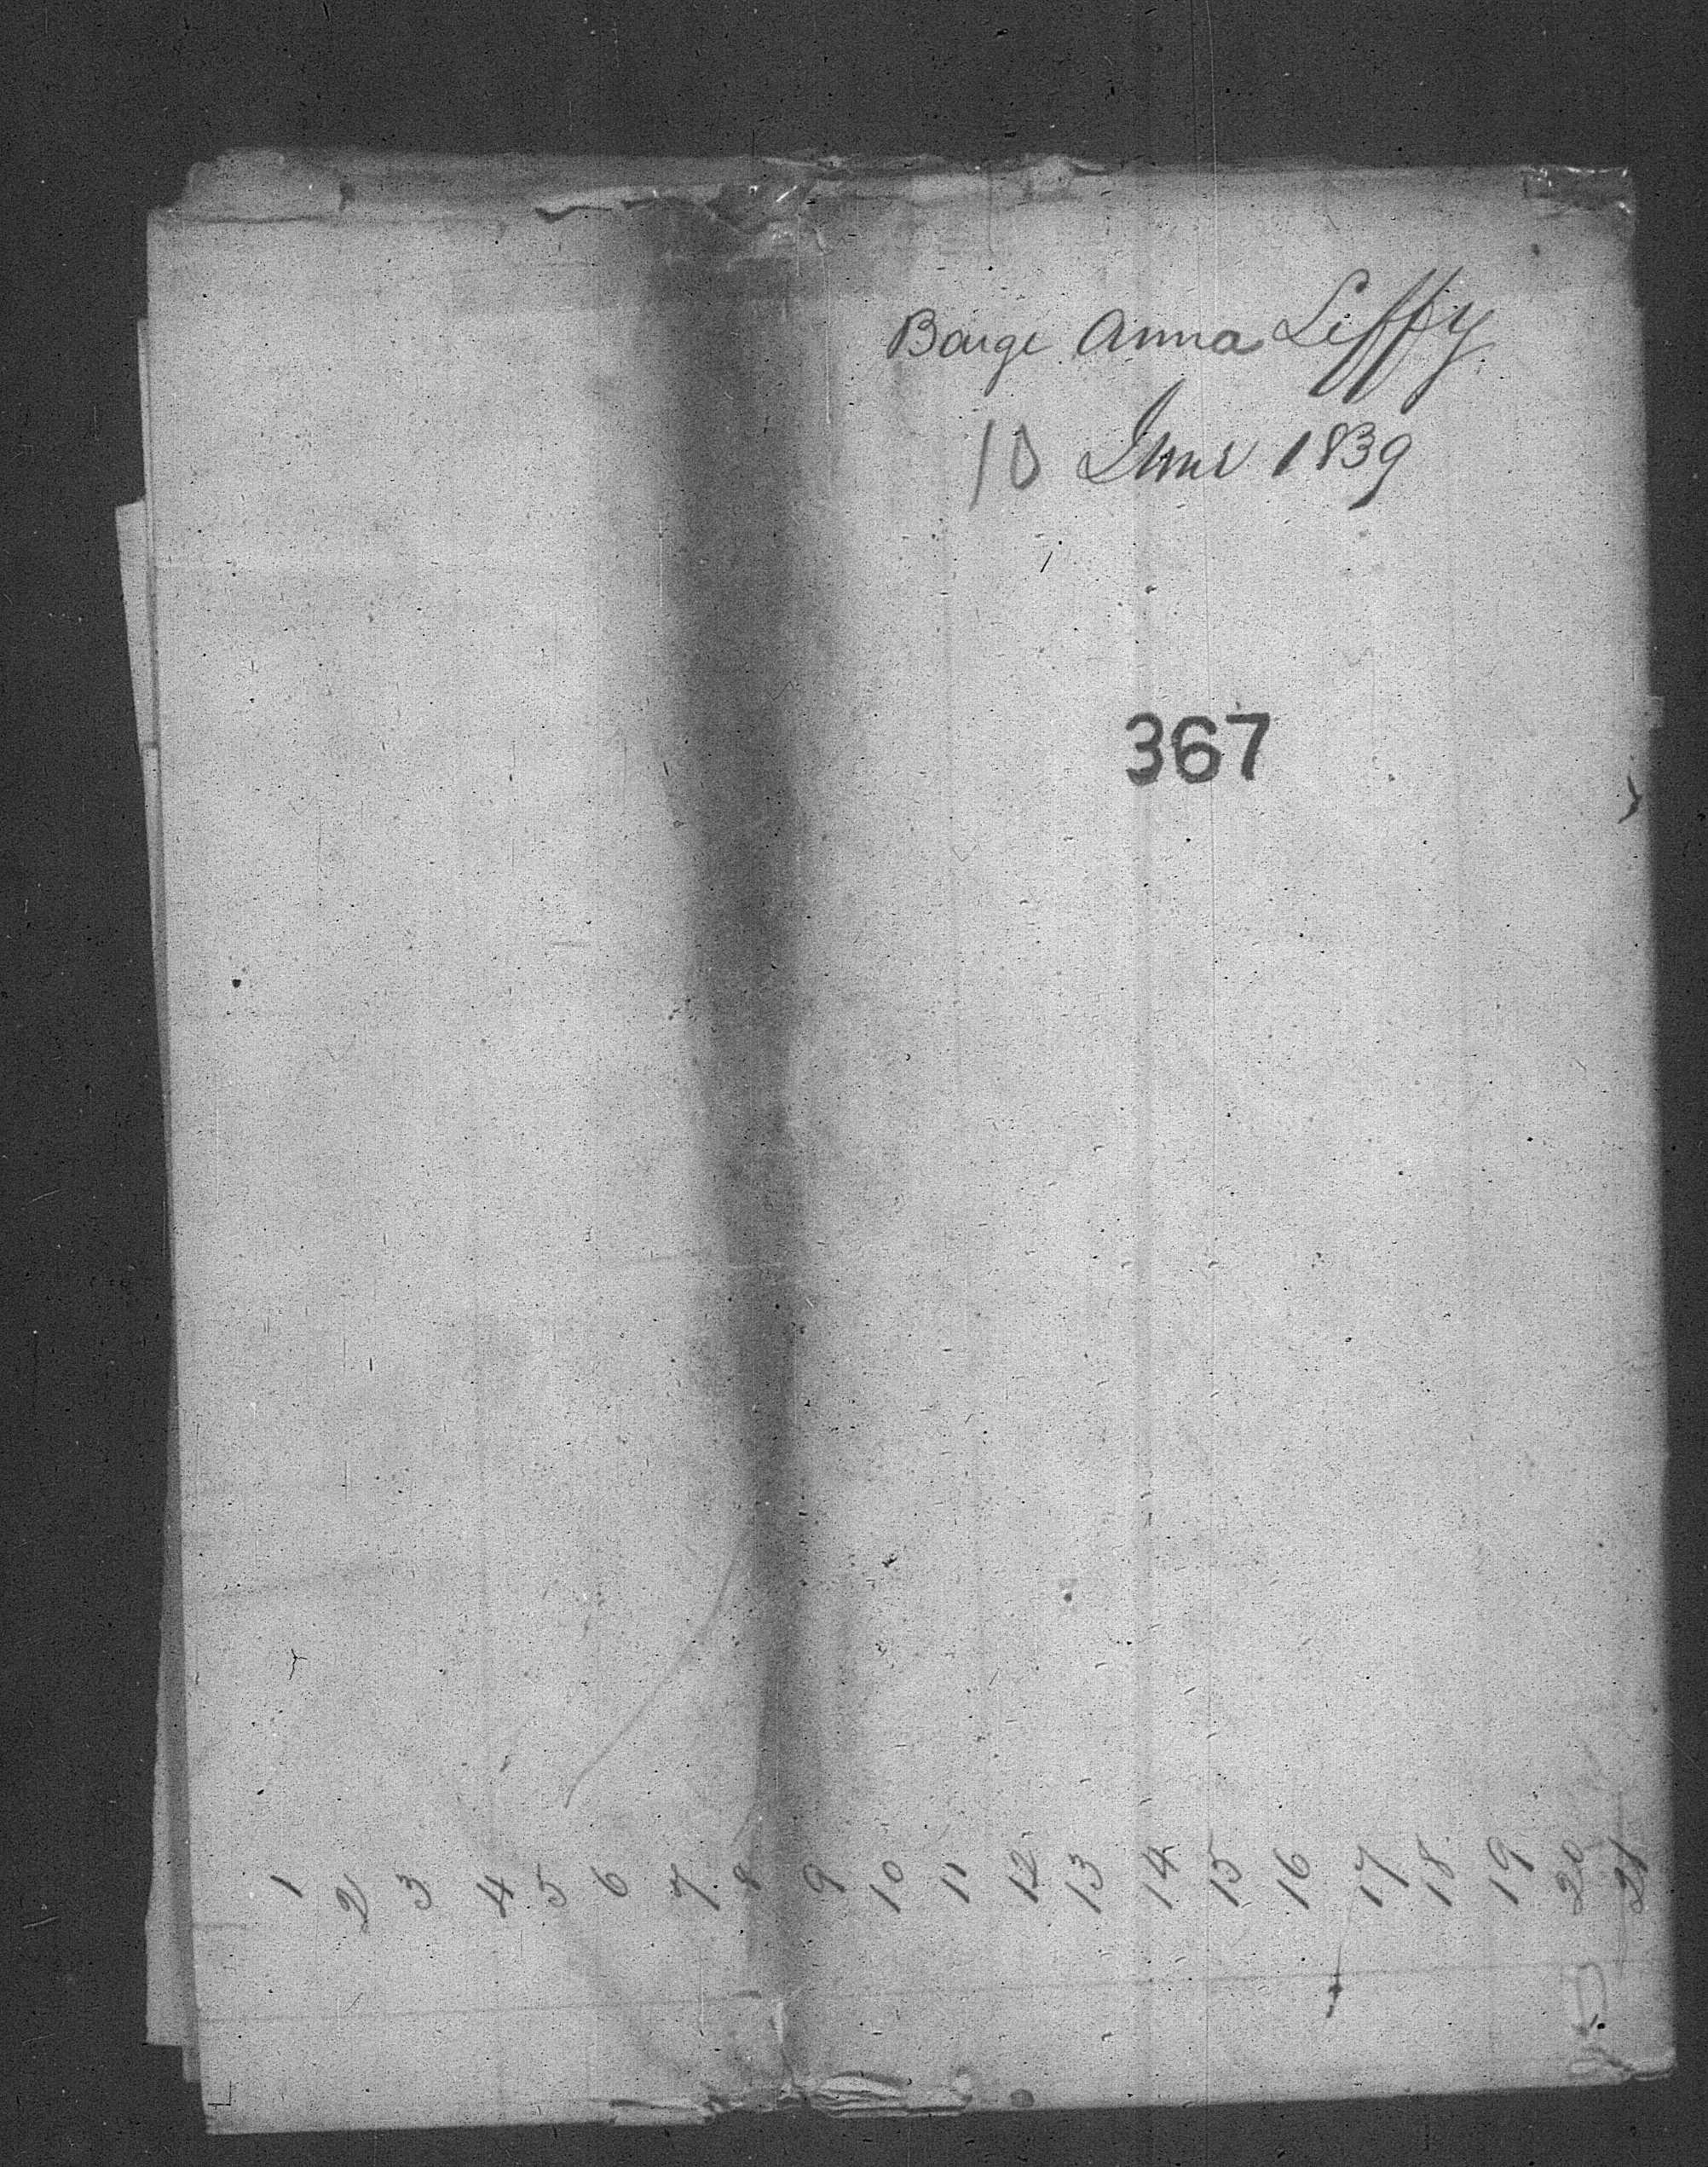 Barge Anna Liffy
10 June 1839
367
1 2 3 4 5 6 7 8 9 10 11 12 13 14 15 16 17 18 19 20 21